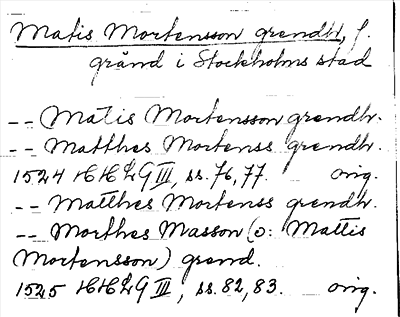 Matis Mortensson grendhr, f.
gränd i Stockholms stad
-- Matis Mortensson grendhr.
-- Matthes Mortenss grendhr.
1524 HH 2 G III, ss. 76, 77. orig.
-- Matthes Mortenss grendhr.
-- Morthes Masson (o: Mattis
Mortensson) grend.
1525 HH 2 G III, ss. 82, 83. orig.